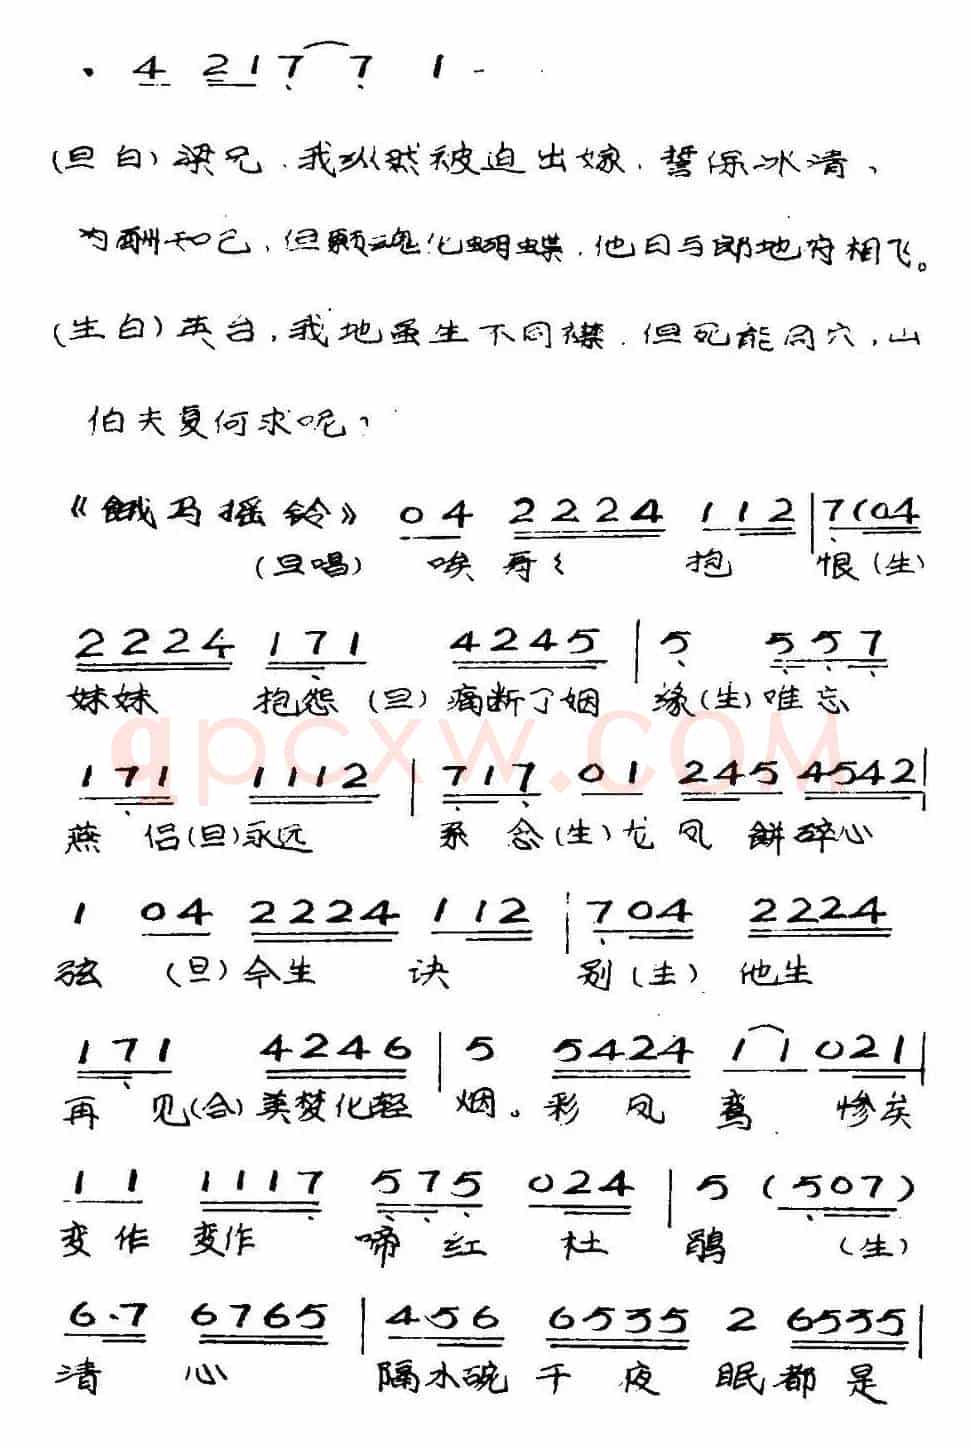 · 4 2 1 7 7 1 -
(旦白) 梁兄，我纵然被迫出嫁，誓保冰清、
为酬知己，但愿魂化蝴蝶，他日与郎地府相飞。
(生白) 英台，我地虽生不同襟，但死能同穴，山
伯夫复何求呢？
《饿马摇铃》 0 4 2 2 2 4 1 1 2 | 7 (0 4
(旦唱) 唉 哥々 抱 恨 (生)
2 2 2 4 1 7 1 4 2 4 5 | 5 5 5 7
妹妹 抱怨 (旦) 痛断了姻 缘 (生) 唯忘
1 7 1 1 1 1 2 | 7 1 7 0 1 2 4 5 4 5 4 2 |
燕 侣 (旦) 永远 系 念 (生) 龙 凤 餅碎心
qpcxw.com
1 0 4 2 2 2 4 1 1 2 | 7 0 4 2 2 2 4
弦 (旦) 今生 诀 别 (生) 他生
1 7 1 4 2 4 6 | 5 5 4 2 4 1 1 0 2 1 |
再 见 (合) 美梦化轻 烟。彩 凤 鸾 惨矣
1 1 1 1 1 7 5 7 5 0 2 4 | 5 (5 0 7)
变作 变作 啼 红 杜 鹃 (生)
6 . 7 6 7 6 5 | 4 . 5 6 6 5 3 5 2 6 5 3 5 |
清 心 隔水碗 千 夜 眠都是